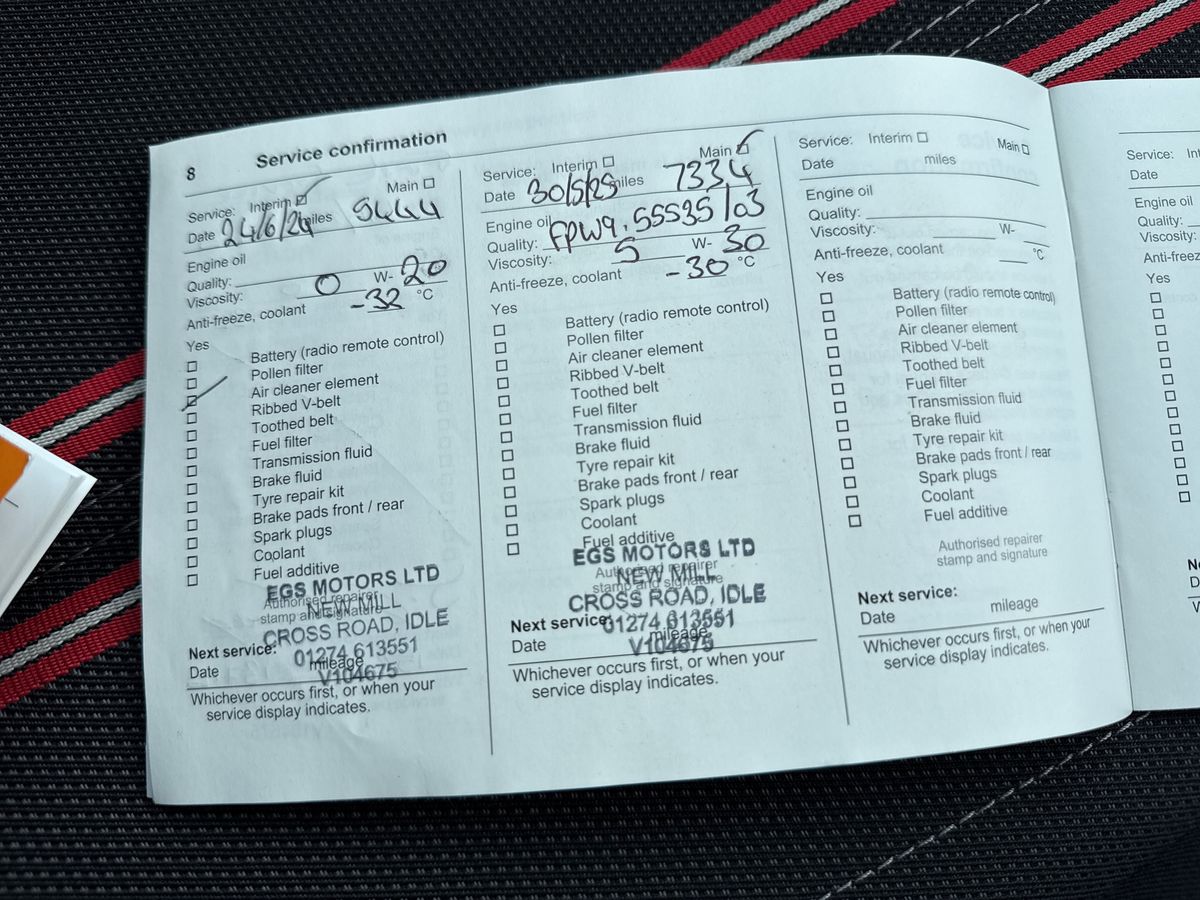 8 Service confirmation
Service: Interim ☑ Main ☐
Date 24/6/24 miles 5444
Engine oil
Quality:
Viscosity: 0 W- 20
Anti-freeze, coolant -32 °C
Yes
☐ Battery (radio remote control)
☐ Pollen filter
☑ Air cleaner element
☐ Ribbed V-belt
☐ Toothed belt
☐ Fuel filter
☐ Transmission fluid
☐ Brake fluid
☐ Tyre repair kit
☐ Brake pads front / rear
☐ Spark plugs
☐ Coolant
☐ Fuel additive
EGS MOTORS LTD
Authorised repairer
NEW MILL
stamp and signature
CROSS ROAD, IDLE
Next service:
01274 613551
Date mileage
V104675
Whichever occurs first, or when your
service display indicates.
Service: Interim ☐ Main ☑
Date 30/5/25 miles 7334
Engine oil
Quality: FPW9.55535/03
Viscosity: 5 W- 30
Anti-freeze, coolant -30 °C
Yes
☐ Battery (radio remote control)
☐ Pollen filter
☐ Air cleaner element
☐ Ribbed V-belt
☐ Toothed belt
☐ Fuel filter
☐ Transmission fluid
☐ Brake fluid
☐ Tyre repair kit
☐ Brake pads front / rear
☐ Spark plugs
☐ Coolant
☐ Fuel additive
EGS MOTORS LTD
Authorised repairer
NEW MILL
stamp and signature
CROSS ROAD, IDLE
Next service:
01274 613551
Date mileage
V104675
Whichever occurs first, or when your
service display indicates.
Service: Interim ☐ Main ☐
Date miles
Engine oil
Quality:
Viscosity: W-
Anti-freeze, coolant °C
Yes
☐ Battery (radio remote control)
☐ Pollen filter
☐ Air cleaner element
☐ Ribbed V-belt
☐ Toothed belt
☐ Fuel filter
☐ Transmission fluid
☐ Brake fluid
☐ Tyre repair kit
☐ Brake pads front / rear
☐ Spark plugs
☐ Coolant
☐ Fuel additive
Authorised repairer
stamp and signature
Next service:
Date mileage
Whichever occurs first, or when your
service display indicates.
Service:
Date
Engine oil
Quality:
Viscosity:
Yes